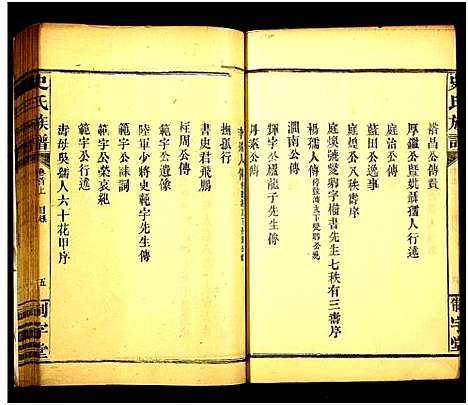 史氏族譜
裕昌公傳贊
厚鑑公暨姚孺人行述
庭洽公傳
藍田公逸事
庭煥公八秩壽序
庭煐號愛卿字楷書先生七秩有三壽序
楊孺人傳
澗南公傳
輝宇公號龍子先生傳
丹葵公傳
李孺人傳
撫孤行
書史君飛鵬
桂周公傳
陸軍少將史範宇先生傳
範宇公遺像
範宇公誄詞
範宇公榮哀紀
範宇公行述
壽母吳孺人六十花甲序
史氏族譜
卷首上 目錄
五